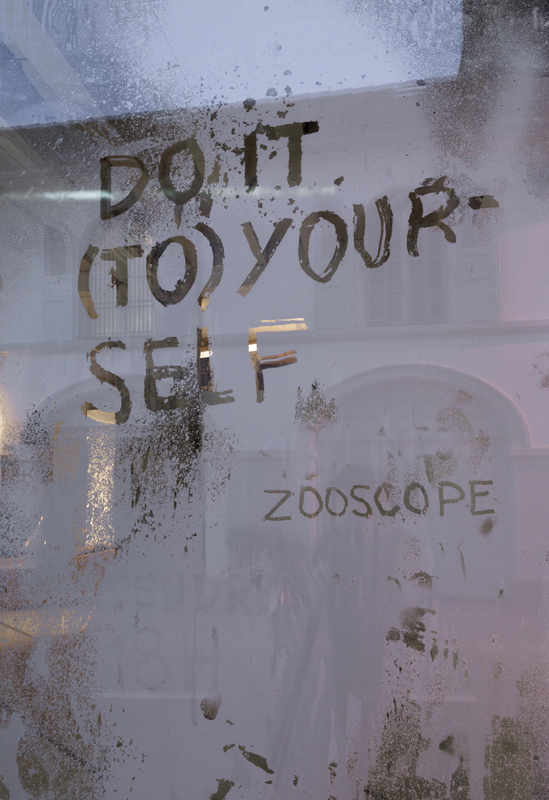 DO IT
(TO) YOUR-
SELF
ZOOSCOPE